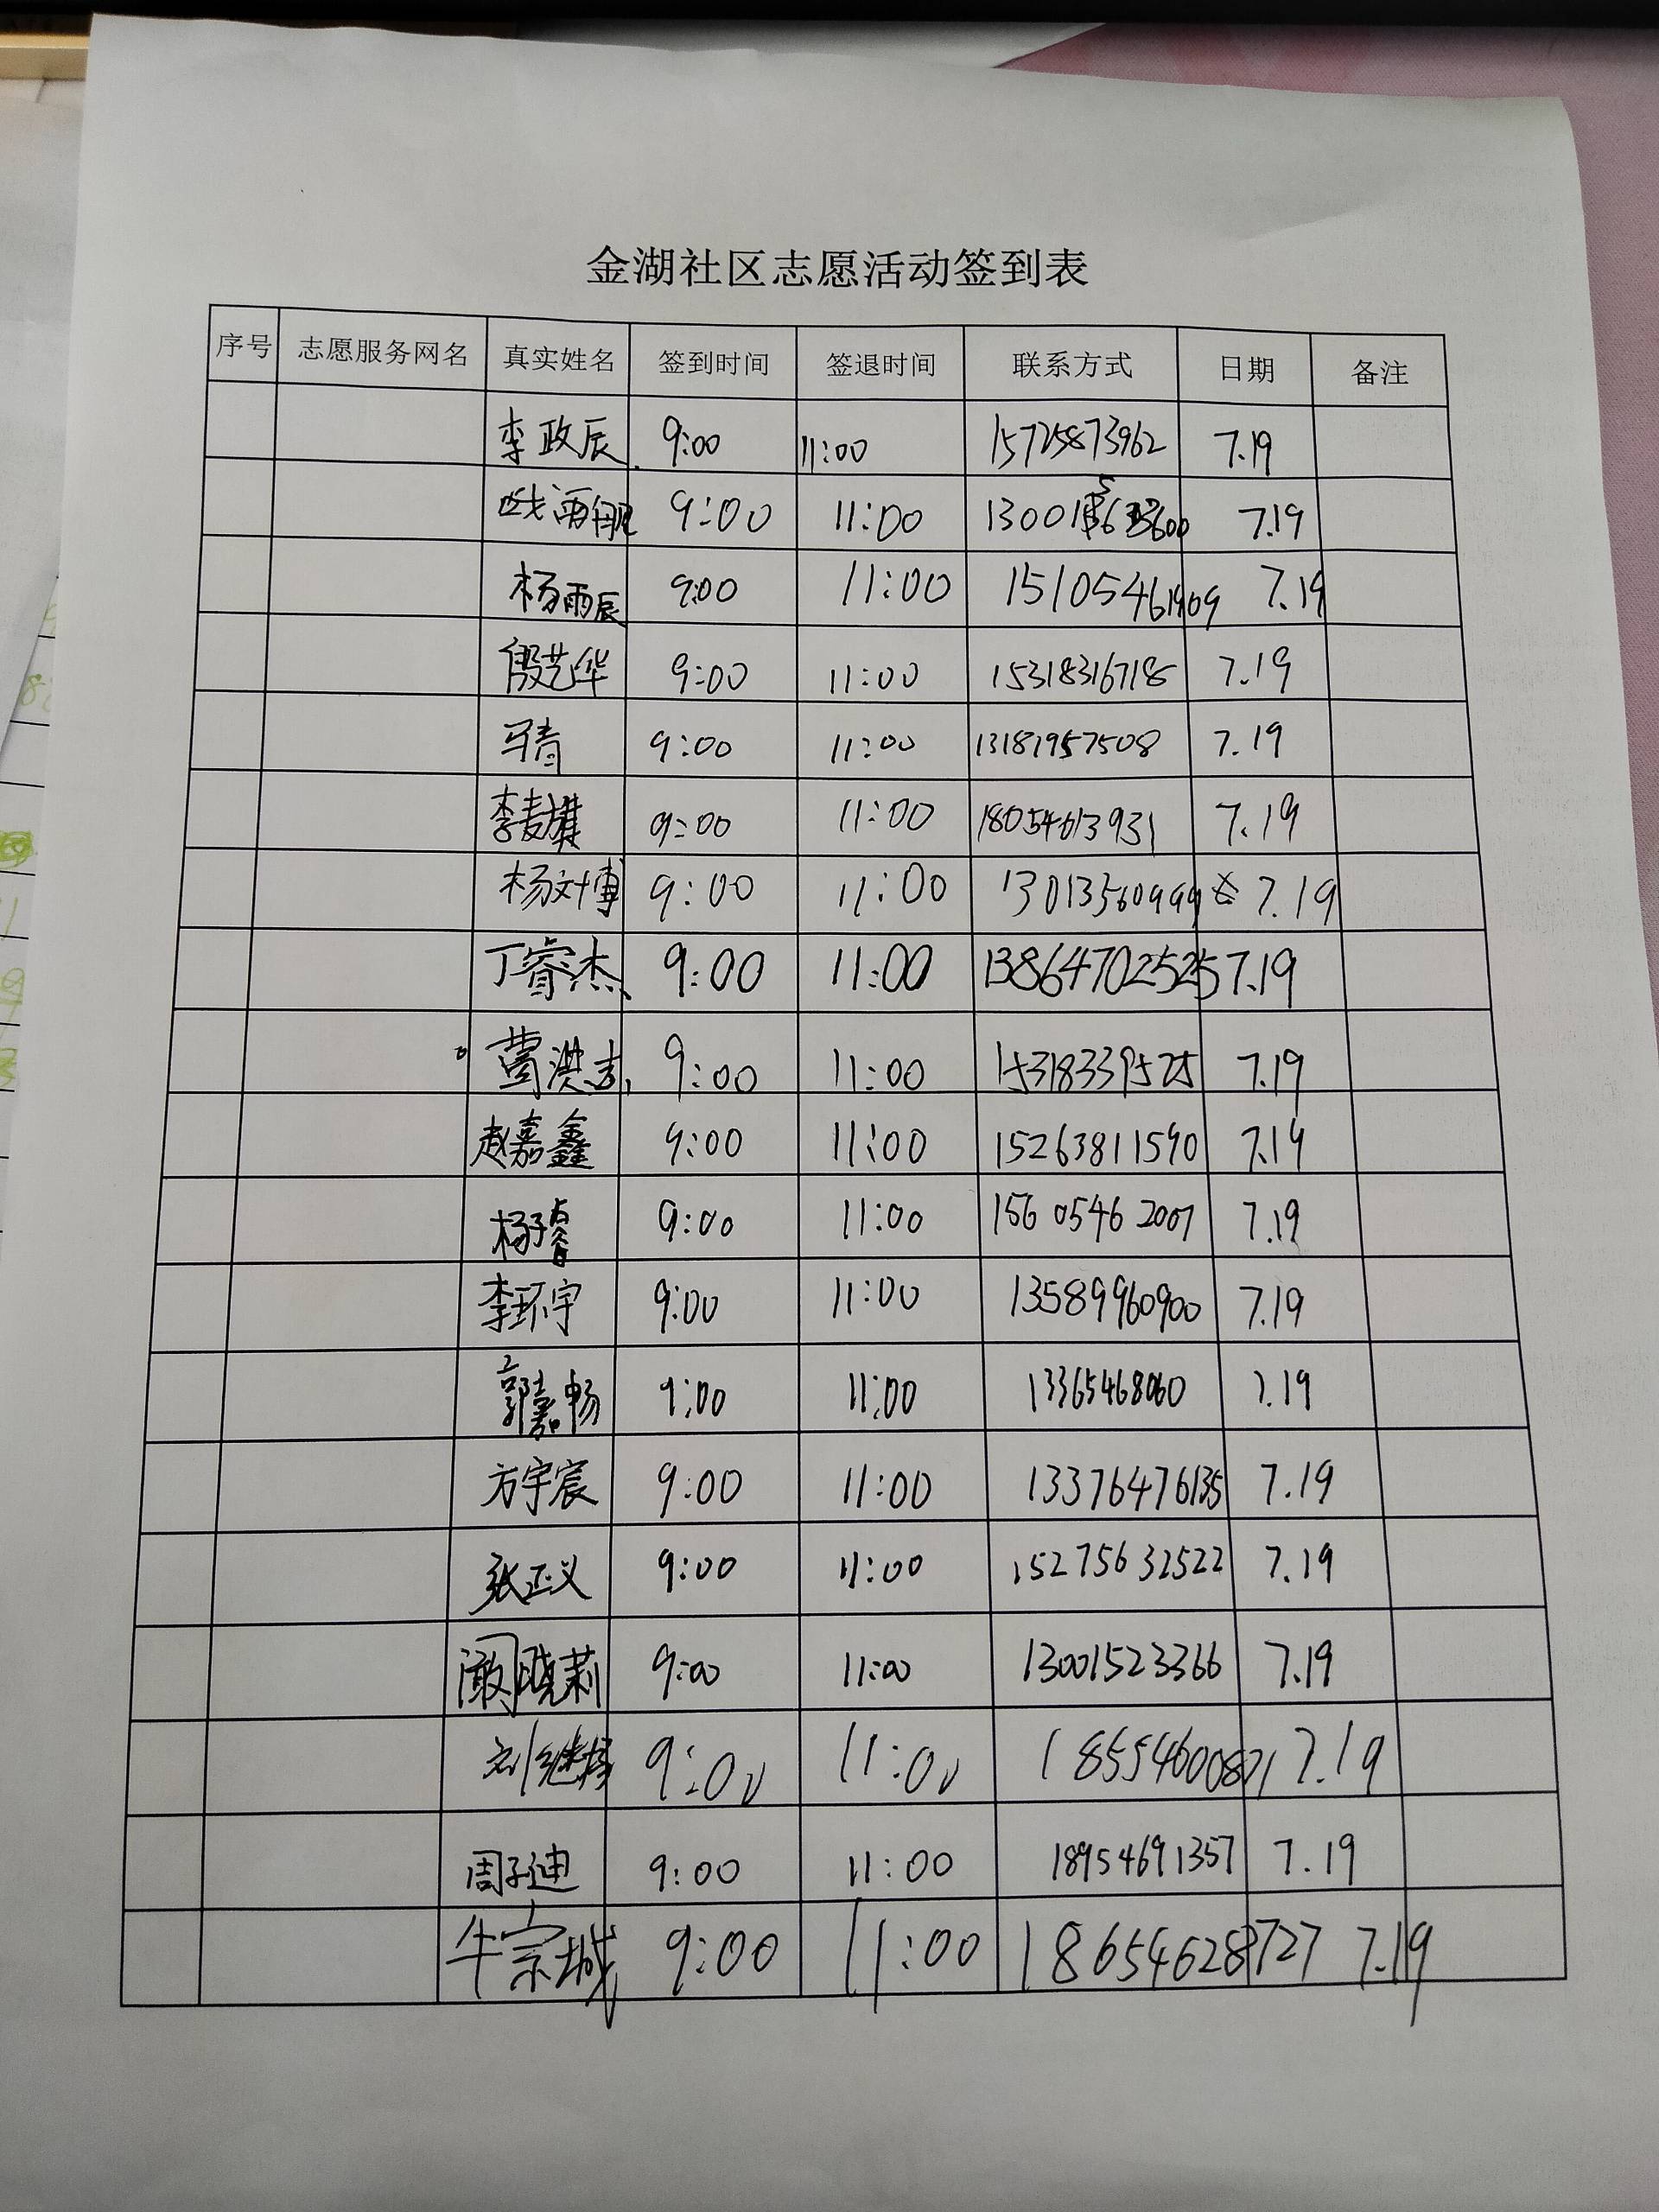 金湖社区志愿活动签到表
序号 志愿服务网名 真实姓名 签到时间 签退时间 联系方式 日期 备注
李政辰 9:00 11:00 15725873962 7.19
9:00 11:00 7.19
杨雨辰 9:00 11:00 15105461909 7.19
殷艺华 9:00 11:00 15318316718 7.19
马青 9:00 11:00 13181957508 7.19
李麦棋 9:00 11:00 18054613931 7.19
杨对博 9:00 11:00 13013560999 7.19
丁睿杰 9:00 11:00 13864702525 7.19
洪志 9:00 11:00 15318339525 7.19
赵嘉鑫 9:00 11:00 15263811590 7.19
杨子睿 9:00 11:00 156 0546 2007 7.19
李环宇 9:00 11:00 13589960900 7.19
郭嘉畅 9:00 11:00 13365468060 7.19
方宇宸 9:00 11:00 13376476135 7.19
张正义 9:00 11:00 15275632522 7.19
阚晓莉 9:00 11:00 13001523366 7.19
刘继择 9:00 11:00 18554600871 7.19
周子迪 9:00 11:00 18954691357 7.19
牛宗城 9:00 11:00 18654628727 7.19